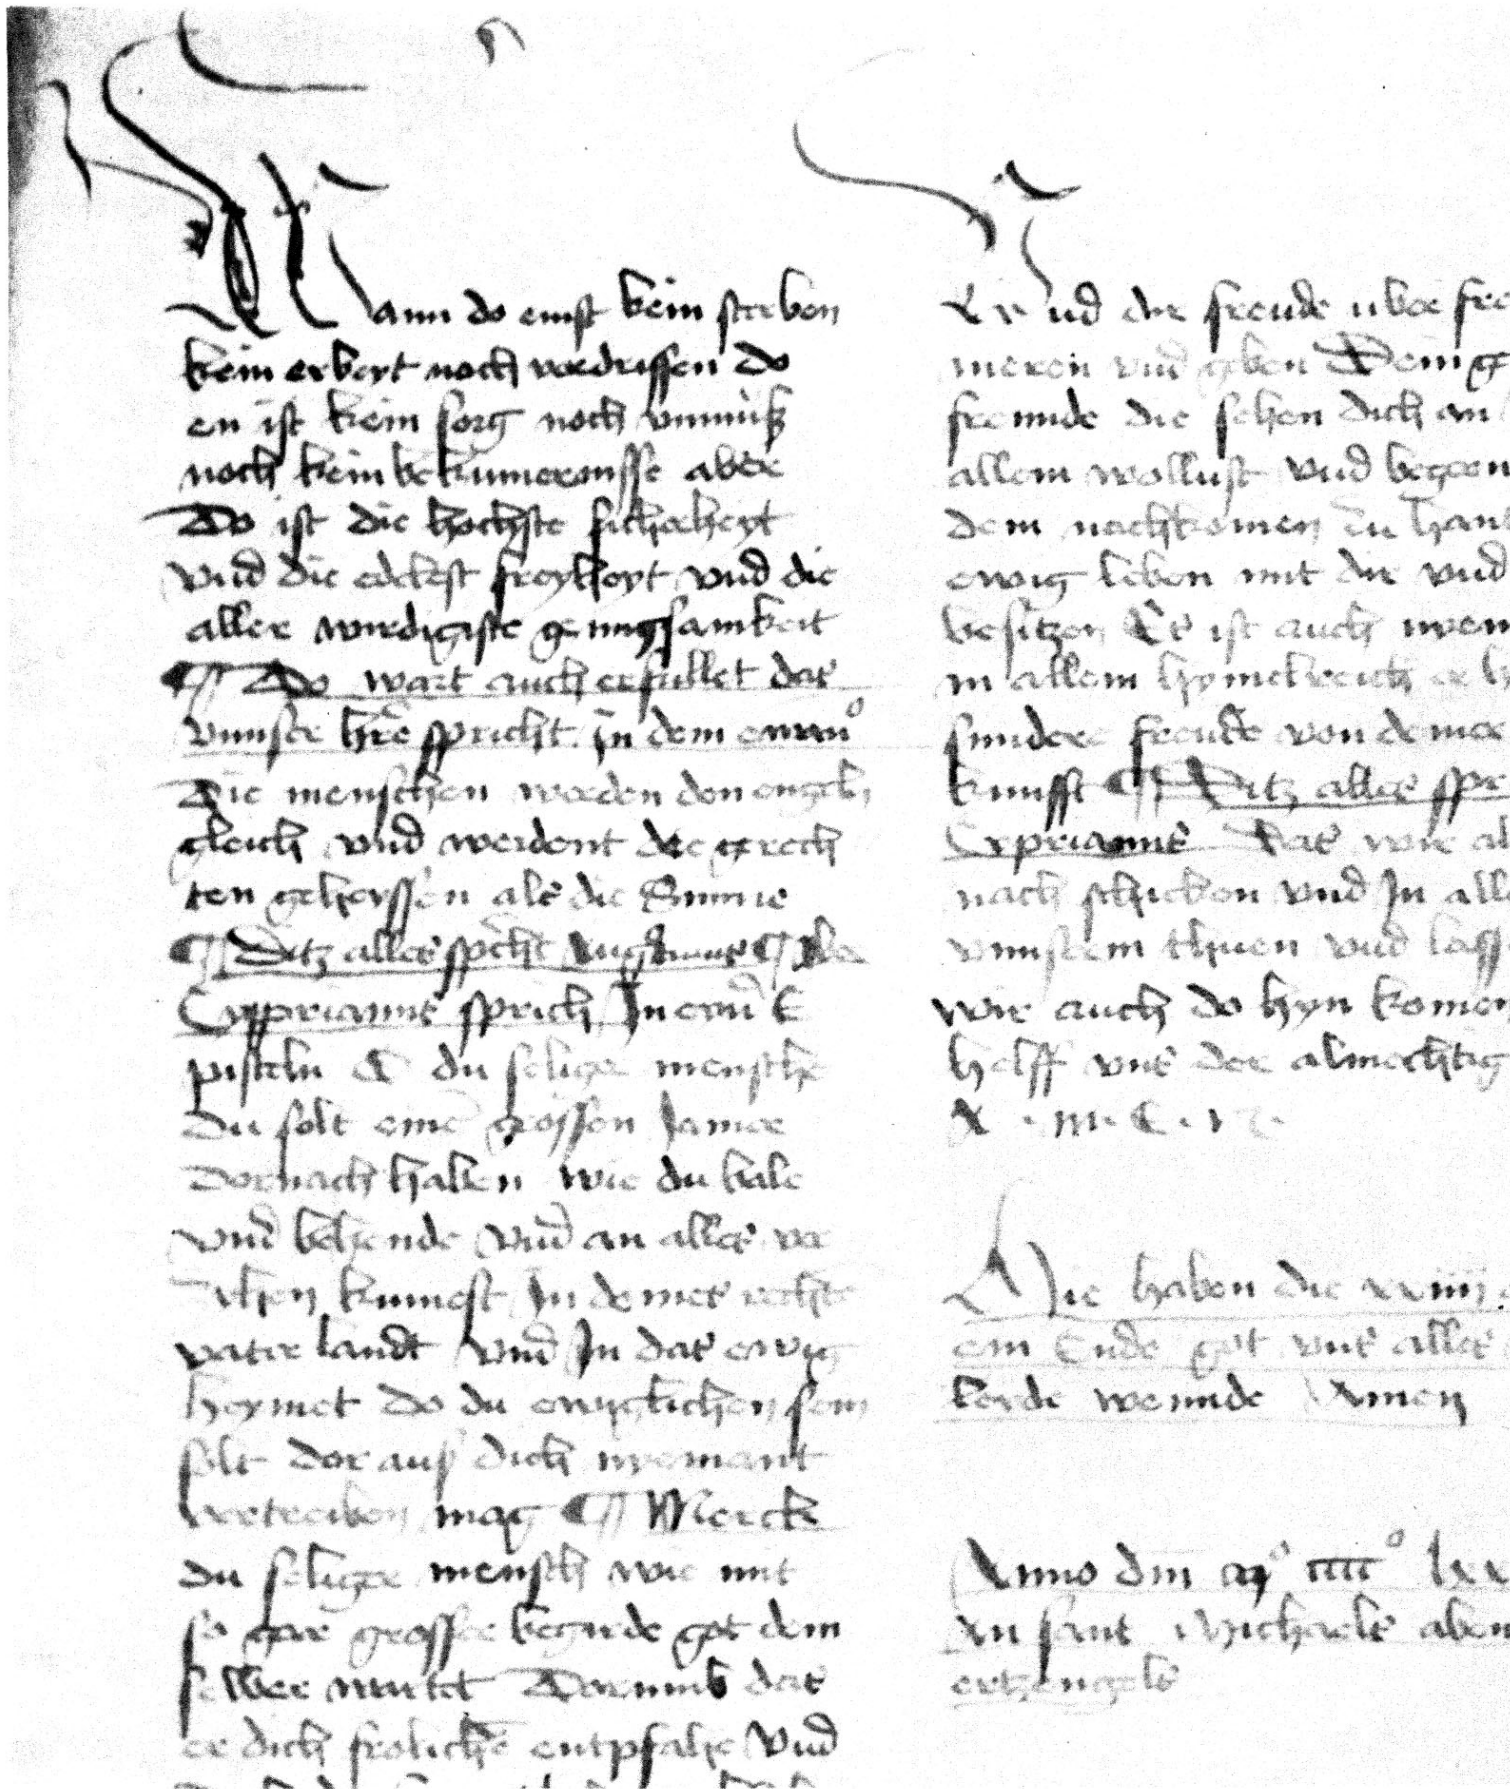 Wann do enist kein sterben
kein erbeyt noch verdrissen do
en ist kein sorg noch vnmuß
noch kein bekumernisse aber
Do ist die hochste sicherheyt
vnd die edelest freykeyt vnd die
aller wirdigiste genugsamkeit
¶ Do wart auch erfullet das
vnnser h're spricht in dem ewan°
Die menschen werden den engeln
gleich vnd werdent die gerech
ten geheyssen als die Sunne
¶ Ditz alles sp'cht Augustinus ¶
Cyprianus sprich In einer E
pisteln O du seliger mensche
Du solt eine grossen Jamer
Dornach haben wie du bale
vnd behende vnd an alles ver
zihen kumest In demes rechte
vater landt vnd In das ewig
heymet do du ewiglichen sein
solt dor auß dich nyemant
vertreiben mag ¶ Merck
du seliger mensch wie mit
so gar grosser begirde got dein
selber wartet Dorumb das
er dich froliche entpfahe vnd
Er vnd die freude vber fre
meren vnd geben Dein g
freunde die sehen dich an
allem wollust vnd begern
dem nachkomen zu hant
ewig leben mit dir vnd
besitzen Es ist auch nyem
in allem hymelreich er h
sundere freude von deiner
kunfft ¶ Ditz alles spr
Cyprianus Das wir al
nach schicken vnd In alle
vnnserm thuen vnd lass
wir auch do hyn komen
helff vns der almechtig
A · m · E · n ·
Hie haben die xxiiii
ein Ende got vns alles
kerde wennde Amen
Anno dm m° iiii° lxx
An sant Michaels aben
ertzengels